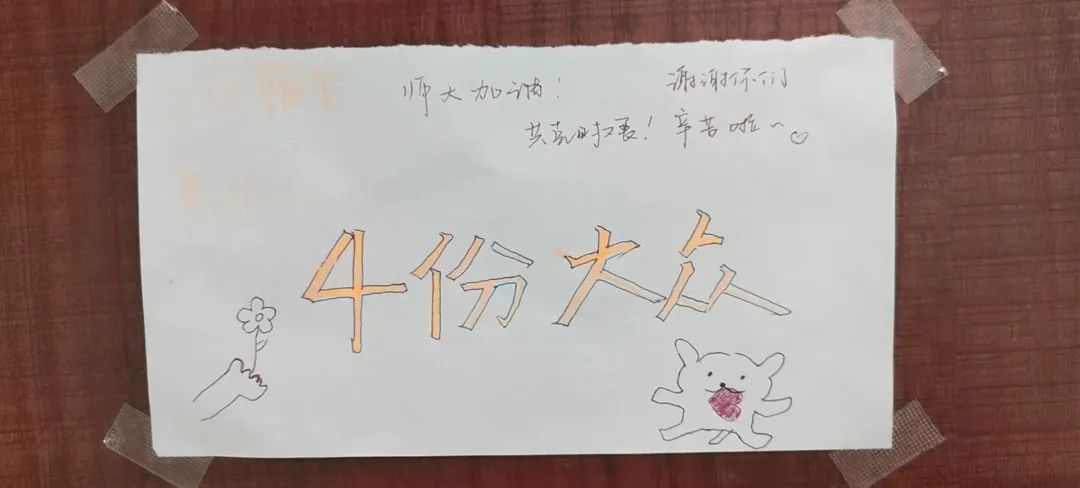 师大加油！
共克时艰！
谢谢你们
辛苦啦~
4份大众